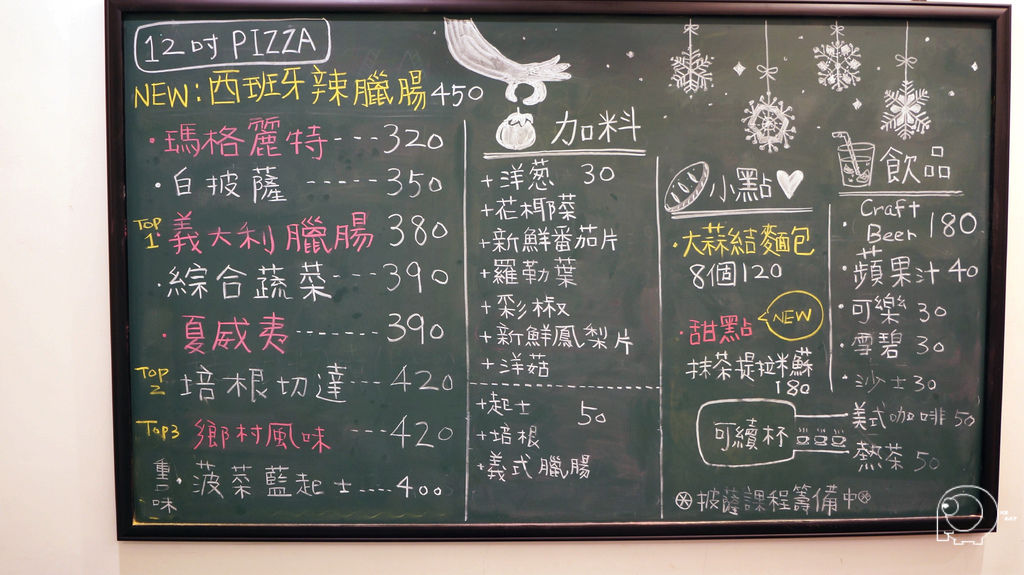 12吋 PIZZA
NEW:西班牙辣臘腸 450
·瑪格麗特---320
·白披薩------350
TOP 1 義大利臘腸 380
·綜合蔬菜---390
·夏威夷-------390
TOP 2 培根切達---420
TOP3 鄉村風味---420
重口味·菠菜藍起士....400
加料
+洋葱 30
+花椰菜
+新鮮番茄片
+羅勒葉
+彩椒
+新鮮鳳梨片
+洋菇
+起士 50
+培根
+義式臘腸
小點
·大蒜結麵包
8個120
·甜點 NEW
抹茶提拉米蘇
180
飲品
·Craft Beer 180
·蘋果汁 40
·可樂 30
·雪碧 30
·沙士30
可續杯
美式咖啡 50
熱茶 50
披薩課程籌備中